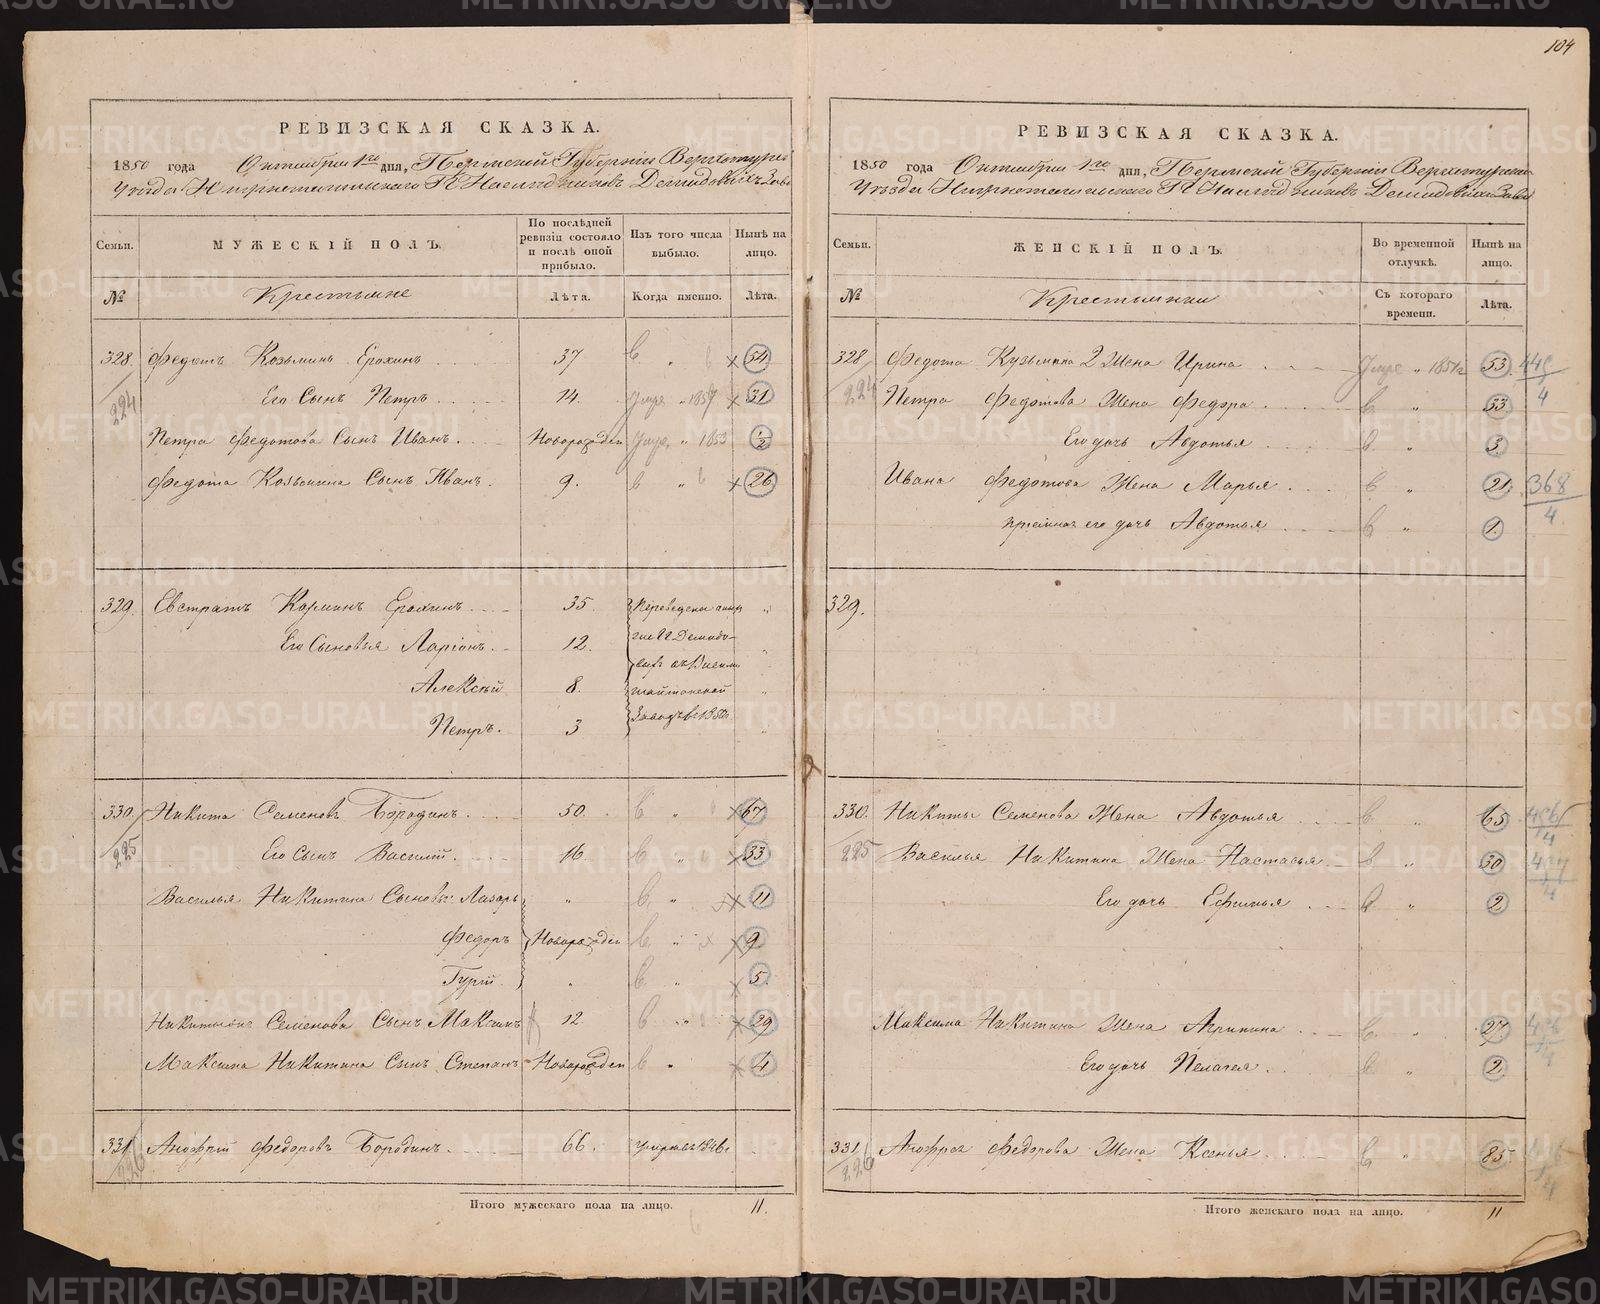 104
РЕВИЗСКАЯ СКАЗКА.
1850 года Октября 1го дня, Пермской Губерніи Верхотурск
Уѣзда Нижнетагильскаго Гг Наслѣдниковъ Демидовыхъ Заво
Семьи. МУЖЕСКІЙ ПОЛЪ. По послѣдней ревизіи состояло и послѣ оной прибыло. Изъ того числа выбыло. Нынѣ на лицо.
№ Крестьяне Лѣта. Когда именно. Лѣта.
328. Федотъ Козьминъ Ерохинъ 37 54
224
Его Сынъ Петръ 14. 31
Петра Федотова Сынъ Иванъ. Новорожден 1853 1/2
Федота Козьмина Сынъ Иванъ. 9. 26
329. Евстратъ Козминъ Ерохинъ 35. Переведены
Его Сыновья Ларіонъ 12. Демидо-
Алексѣй 8.
Петръ. 3
330. Никита Семеновъ Бородинъ. 50. 67
225
Его Сынъ Василій. 16 33
Василья Никитина Сыновья: Лазарь " 11
Федоръ Новорожден 9
Гурій. " 5
Никитына Семенова Сынъ Максимъ 12 29
Максима Никитина Сынъ Степанъ Новорожден 4
331. Анофрій Федоровъ Бородинъ. 66. умеръ въ 1846г
226
Итого мужескаго пола на лицо. 11.
РЕВИЗСКАЯ СКАЗКА.
1850 года Октября 1го дня, Пермской Губерніи Верхотурска
Уѣзда Нижнетагильскаго Гг Наслѣдниковъ Демидовыхъ Заво
Семьи. ЖЕНСКІЙ ПОЛЪ. Во временной отлучкѣ. Нынѣ на лицо.
№ Крестьянки Съ котораго времени. Лѣта.
328 Федота Кузьмина 2 Жена Ирина 53
224
Петра Федотова Жена Федора 33 4
Его дочь Авдотья 3
Ивана Федотова Жена Марья 21 368/4
его дочь Авдотья 1.
329.
330. Никиты Семенова Жена Авдотья 65
225 Василья Никитина Жена Настасья 30
Его дочь Ефимья 2
Максима Никитина Жена Агрипина 27
Его дочь Пелагея 2
331. Анофрея Федорова Жена Ксенья 85
226
Итого женскаго пола на лицо. 11
METRIKI.GASO-URAL.RU